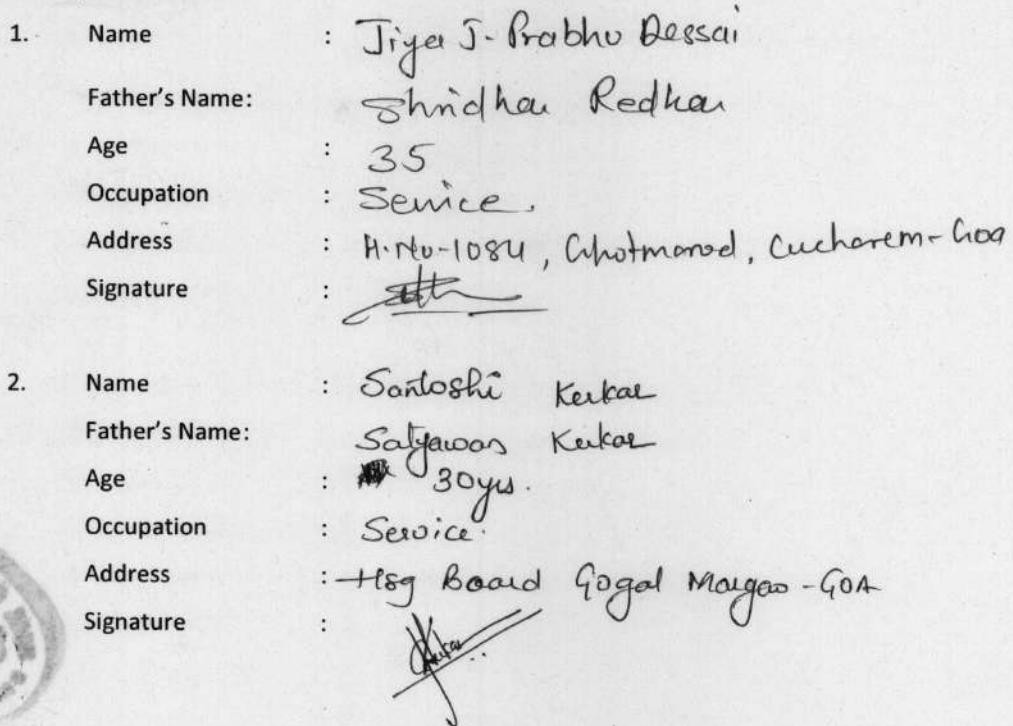 1. Name : Jiya J. Prabhu Dessai
Father's Name: Shridhar Redkar
Age : 35
Occupation : Service.
Address : H.No-1084, Ghotmorod, Curchorem-Goa
Signature :
2. Name : Santoshi Kerkar
Father's Name: Satyawan Kerkar
Age : 30yrs.
Occupation : Service.
Address : Hsg Board Gogal Margao-GOA
Signature :